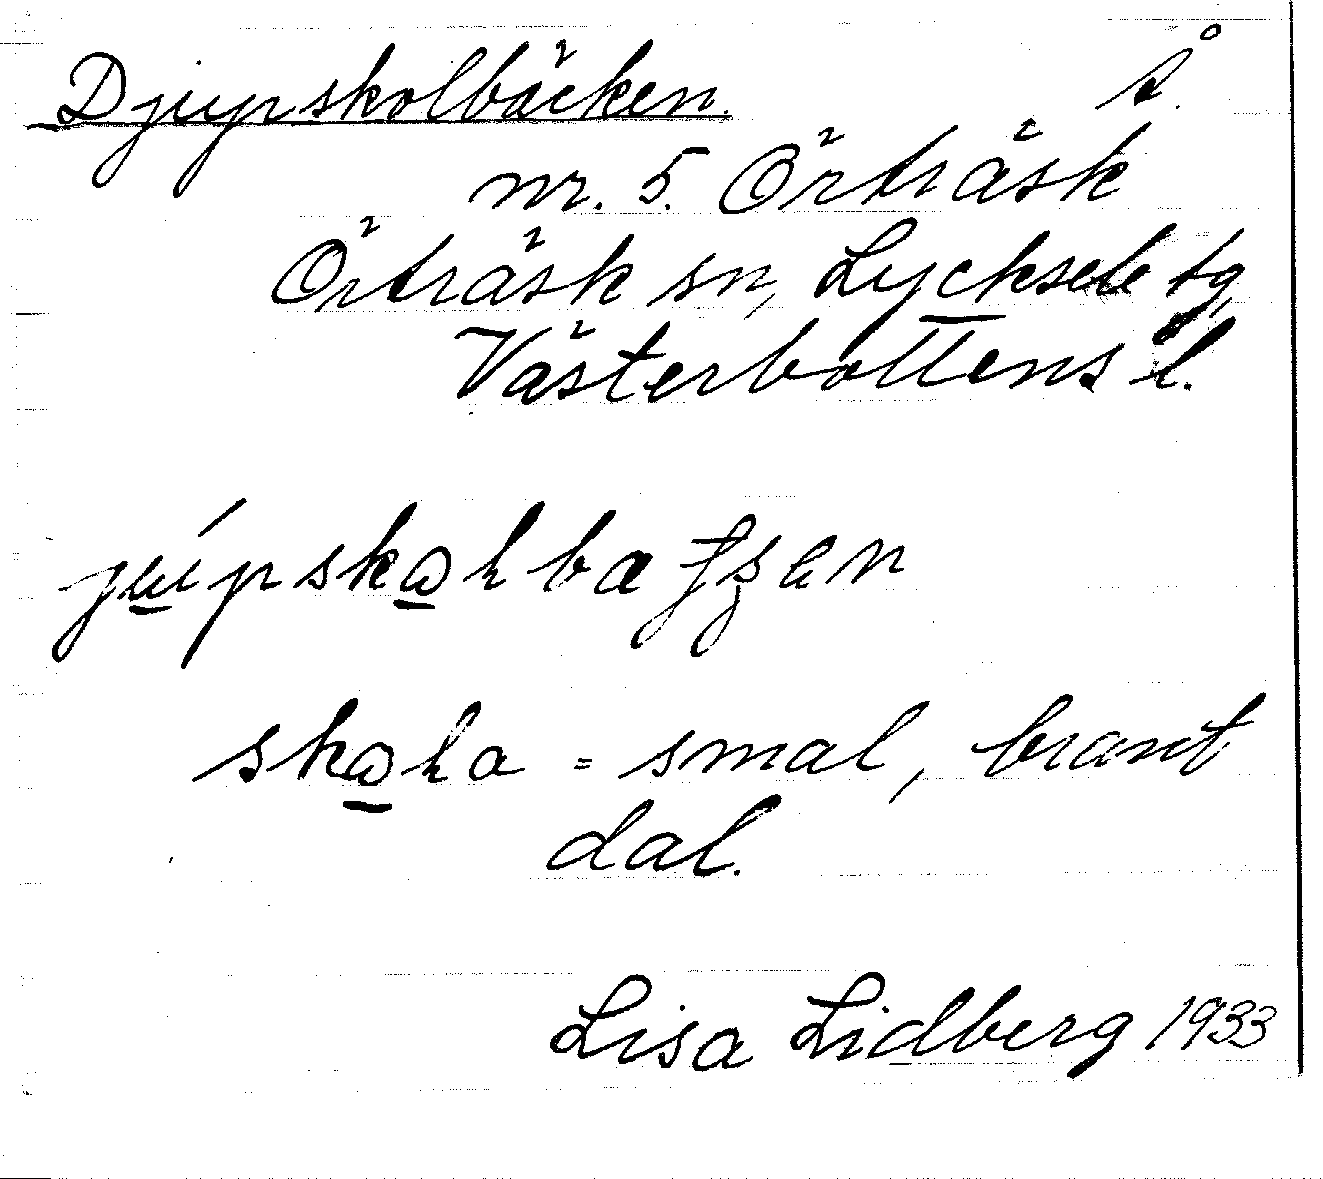 Djupskolbäcken. Å
nr. 5. Örträsk
Örträsk sn, Lycksele tg
Västerbottens l.
smal, brant
dal.
Lisa Lidberg 1933